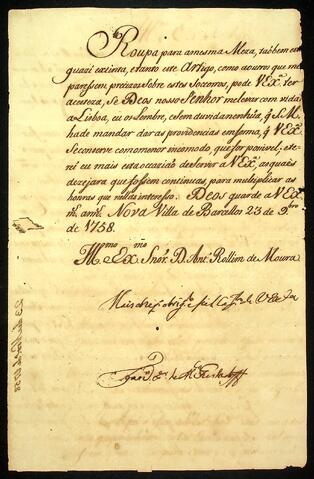 Roupa para amesma Meza, taõbem está
quazi extincta, etanto este Artigo, como aoutros que me
paressem precizos sobre estes Socorros, pode V Ex.ª ter
acerteza, se Deos nosso Senhor me levar com vida
a Lisboa, eu os Lembre, esem duvida nenhũa, q̃ S. M.
hade mandar dar as providencias emforma, q̃ V Ex.ª
Se conserve com o menor incomodo, que for ponivel, e te
rei eu mais esta occaziaõ deServir a V Ex.ª, as quais
dezejara que fossem continuas, para multiplicar as
honras que nellas interesso. Deos guarde a V Ex.ª
m. ann.ˢ Nova Villa de Barcellos 23 de 9.bro
de 1758.
Il.mo e Ex.mo Snõr. D. Ant. Rollim de Moura
Mais de V Ex.ª
Fran.co X.er de M.ça Furtado
23 de 1758